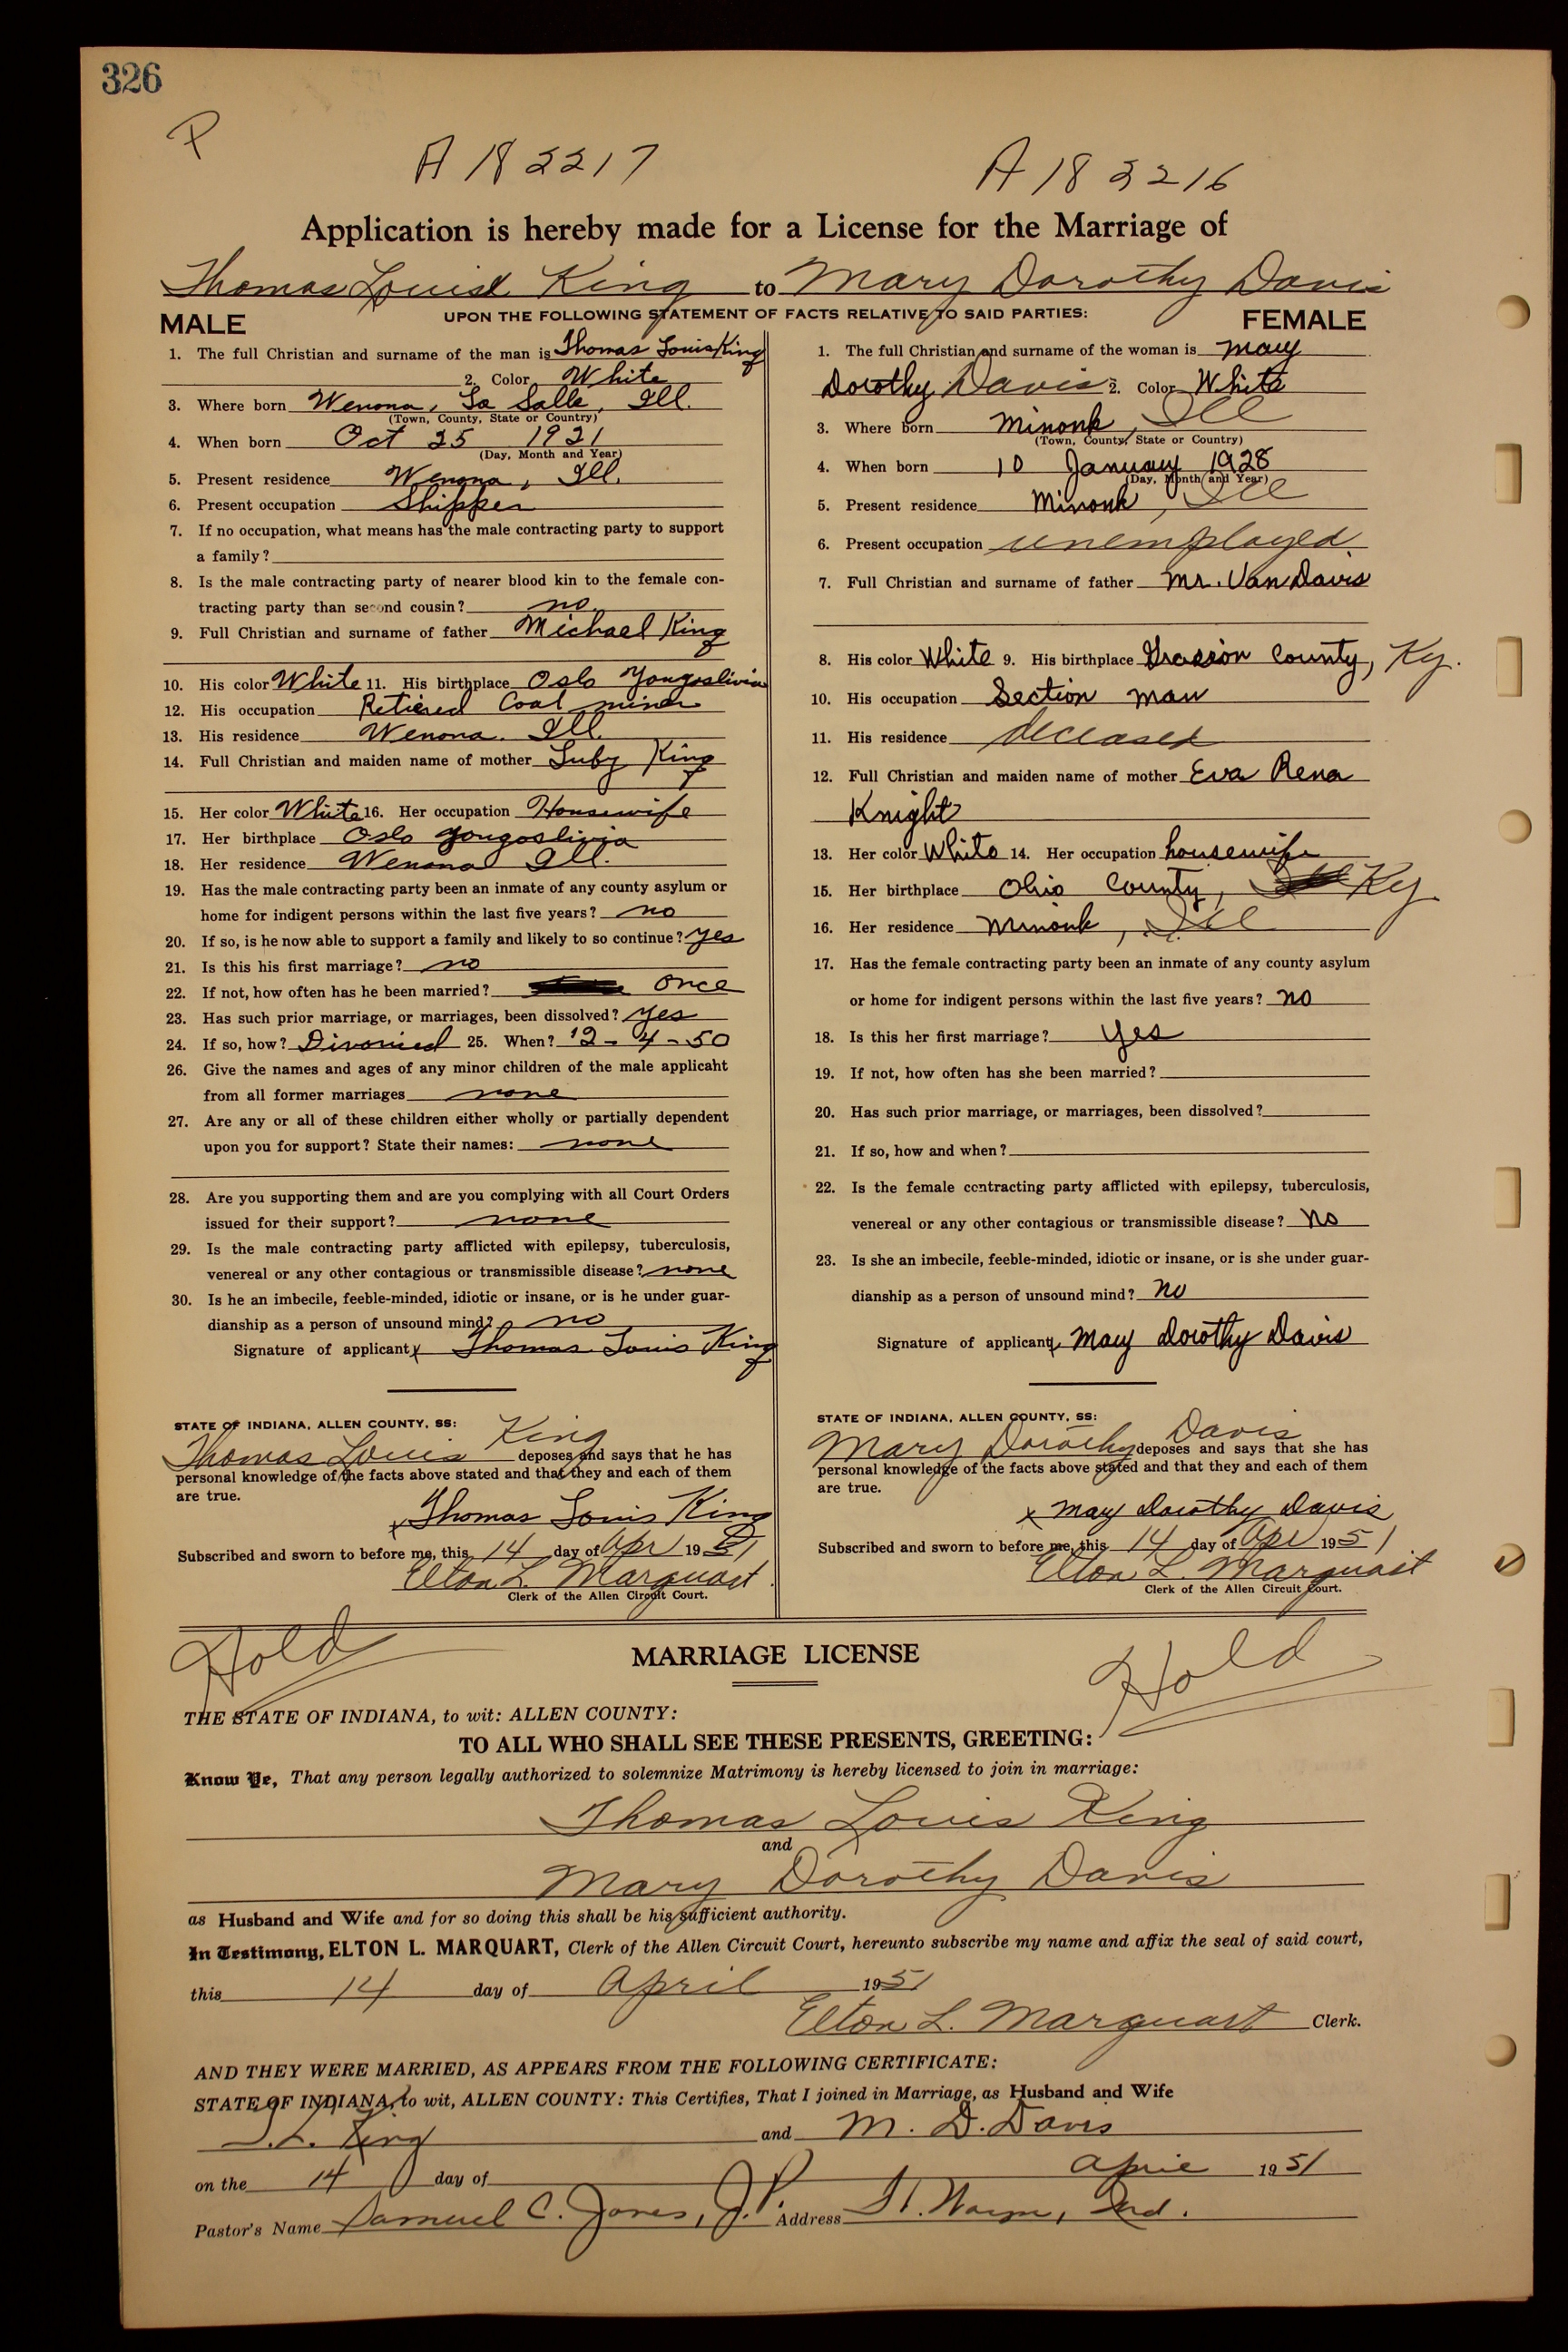 326
P
A 182217 A 182216
Application is hereby made for a License for the Marriage of
Thomas Louis King to Mary Dorothy Davis
UPON THE FOLLOWING STATEMENT OF FACTS RELATIVE TO SAID PARTIES:
MALE
1. The full Christian and surname of the man is Thomas Louis King
2. Color White
3. Where born Wenona, La Salle, Ill.
(Town, County, State or Country)
4. When born Oct 25 1921
(Day, Month and Year)
5. Present residence Wenona, Ill.
6. Present occupation Shipper
7. If no occupation, what means has the male contracting party to support
a family?
8. Is the male contracting party of nearer blood kin to the female con-
tracting party than second cousin? no
9. Full Christian and surname of father Michael King
10. His color White 11. His birthplace Oslo Yongoslivia
12. His occupation Retiered Coal miner
13. His residence Wenona. Ill.
14. Full Christian and maiden name of mother Luby King
15. Her color White 16. Her occupation Housewife
17. Her birthplace Oslo Yongoslivia
18. Her residence Wenona Ill.
19. Has the male contracting party been an inmate of any county asylum or
home for indigent persons within the last five years? no
20. If so, is he now able to support a family and likely to so continue? yes
21. Is this his first marriage? no
22. If not, how often has he been married? once
23. Has such prior marriage, or marriages, been dissolved? yes
24. If so, how? Divorced 25. When? 12-4-50
26. Give the names and ages of any minor children of the male applicaht
from all former marriages none
27. Are any or all of these children either wholly or partially dependent
upon you for support? State their names: none
28. Are you supporting them and are you complying with all Court Orders
issued for their support? none
29. Is the male contracting party afflicted with epilepsy, tuberculosis,
venereal or any other contagious or transmissible disease? none
30. Is he an imbecile, feeble-minded, idiotic or insane, or is he under guar-
dianship as a person of unsound mind? no
Signature of applicant x Thomas Louis King
STATE OF INDIANA, ALLEN COUNTY, SS:
Thomas Louis King deposes and says that he has
personal knowledge of the facts above stated and that they and each of them
are true.
x Thomas Louis King
Subscribed and sworn to before me, this 14 day of Apr 1951
Elton L. Marquart
Clerk of the Allen Circuit Court.
FEMALE
1. The full Christian and surname of the woman is Mary
Dorothy Davis 2. Color White
3. Where born Minonk, Ill
(Town, County, State or Country)
4. When born 10 January 1928
(Day, Month and Year)
5. Present residence Minonk, Ill
6. Present occupation unemployed.
7. Full Christian and surname of father Mr. Van Davis
8. His color White 9. His birthplace County, Ky.
10. His occupation Section man
11. His residence deceased
12. Full Christian and maiden name of mother Eva Rena
Knight
13. Her color White 14. Her occupation housewife
15. Her birthplace Ohio County, Ky.
16. Her residence Minonk, Ill
17. Has the female contracting party been an inmate of any county asylum
or home for indigent persons within the last five years? no
18. Is this her first marriage? yes
19. If not, how often has she been married?
20. Has such prior marriage, or marriages, been dissolved?
21. If so, how and when?
22. Is the female contracting party afflicted with epilepsy, tuberculosis,
venereal or any other contagious or transmissible disease? no
23. Is she an imbecile, feeble-minded, idiotic or insane, or is she under guar-
dianship as a person of unsound mind? no
Signature of applicant x Mary Dorothy Davis
STATE OF INDIANA, ALLEN COUNTY, SS:
Mary Dorothy Davis deposes and says that she has
personal knowledge of the facts above stated and that they and each of them
are true.
x Mary Dorothy Davis
Subscribed and sworn to before me, this 14 day of Apr 1951
Elton L. Marquart
Clerk of the Allen Circuit Court.
Hold MARRIAGE LICENSE Hold
THE STATE OF INDIANA, to wit: ALLEN COUNTY:
TO ALL WHO SHALL SEE THESE PRESENTS, GREETING:
Know Ye, That any person legally authorized to solemnize Matrimony is hereby licensed to join in marriage:
Thomas Louis King
and
Mary Dorothy Davis
as Husband and Wife and for so doing this shall be his sufficient authority.
In Testimony, ELTON L. MARQUART, Clerk of the Allen Circuit Court, hereunto subscribe my name and affix the seal of said court,
this 14 day of April 1951
Elton L. Marquart Clerk.
AND THEY WERE MARRIED, AS APPEARS FROM THE FOLLOWING CERTIFICATE:
STATE OF INDIANA, to wit, ALLEN COUNTY: This Certifies, That I joined in Marriage, as Husband and Wife
T. L. King and M. D. Davis
on the 14 day of April 1951
Pastor's Name Samuel C. Jones, J.P. Address Ft. Wayne, Ind.